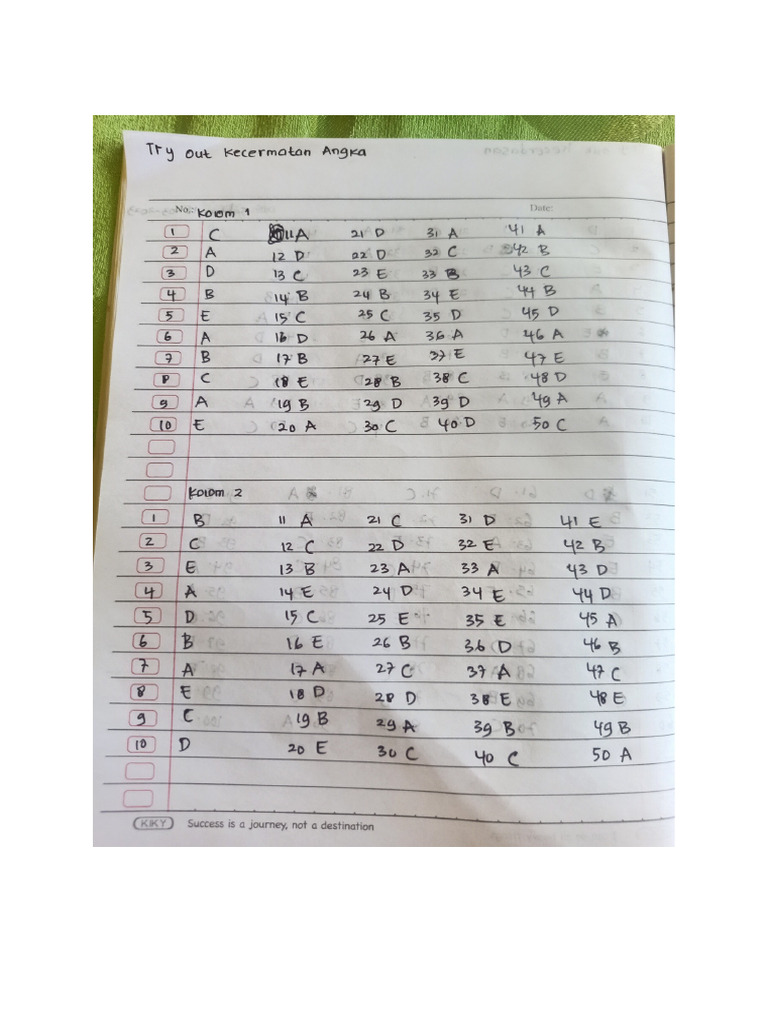 Try Out Kecermatan Angka
No.: Kolom 1 Date:
1 C 11 A 21 D 31 A 41 A
2 A 12 D 22 D 32 C 42 B
3 D 13 C 23 E 33 B 43 C
4 B 14 B 24 B 34 E 44 B
5 E 15 C 25 C 35 D 45 D
6 A 16 D 26 A 36 A 46 A
7 B 17 B 27 E 37 E 47 E
8 C 18 E 28 B 38 C 48 D
9 A 19 B 29 D 39 D 49 A
10 E 20 A 30 C 40 D 50 C
Kolom 2
1 B 11 A 21 C 31 D 41 E
2 C 12 C 22 D 32 E 42 B
3 E 13 B 23 A 33 A 43 D
4 A 14 E 24 D 34 E 44 D
5 D 15 C 25 E 35 E 45 A
6 B 16 E 26 B 36 D 46 B
7 A 17 A 27 C 37 A 47 C
8 E 18 D 28 D 38 E 48 E
9 C 19 B 29 A 39 B 49 B
10 D 20 E 30 C 40 C 50 A
KIKY Success is a journey, not a destination